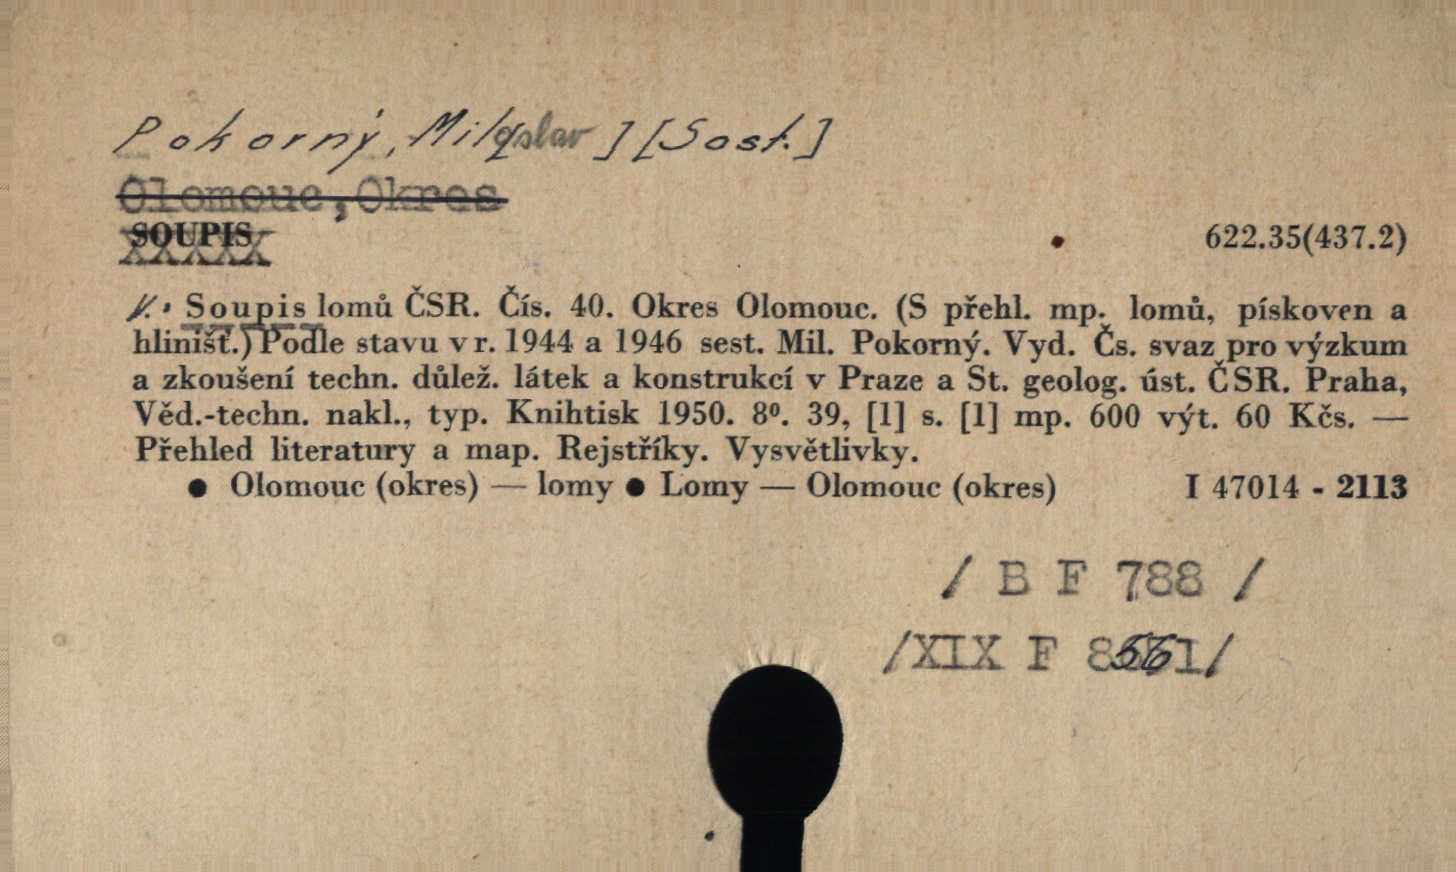 Pokorný, Miloslav] [Sost.]
Olomouc, Okres
SOUPIS
622.35(437.2)
Soupis lomů ČSR. Čís. 40. Okres Olomouc. (S přehl. mp. lomů, pískoven a
hlinišť.) Podle stavu v r. 1944 a 1946 sest. Mil. Pokorný. Vyd. Čs. svaz pro výzkum
a zkoušení techn. důlež. látek a konstrukcí v Praze a St. geolog. úst. ČSR. Praha,
Věd.-techn. nakl., typ. Knihtisk 1950. 8⁰. 39, [1] s. [1] mp. 600 výt. 60 Kčs. —
Přehled literatury a map. Rejstříky. Vysvětlivky.
● Olomouc (okres) — lomy ● Lomy — Olomouc (okres) I 47014 - 2113
/ B F 788 /
/XIX F 8561/